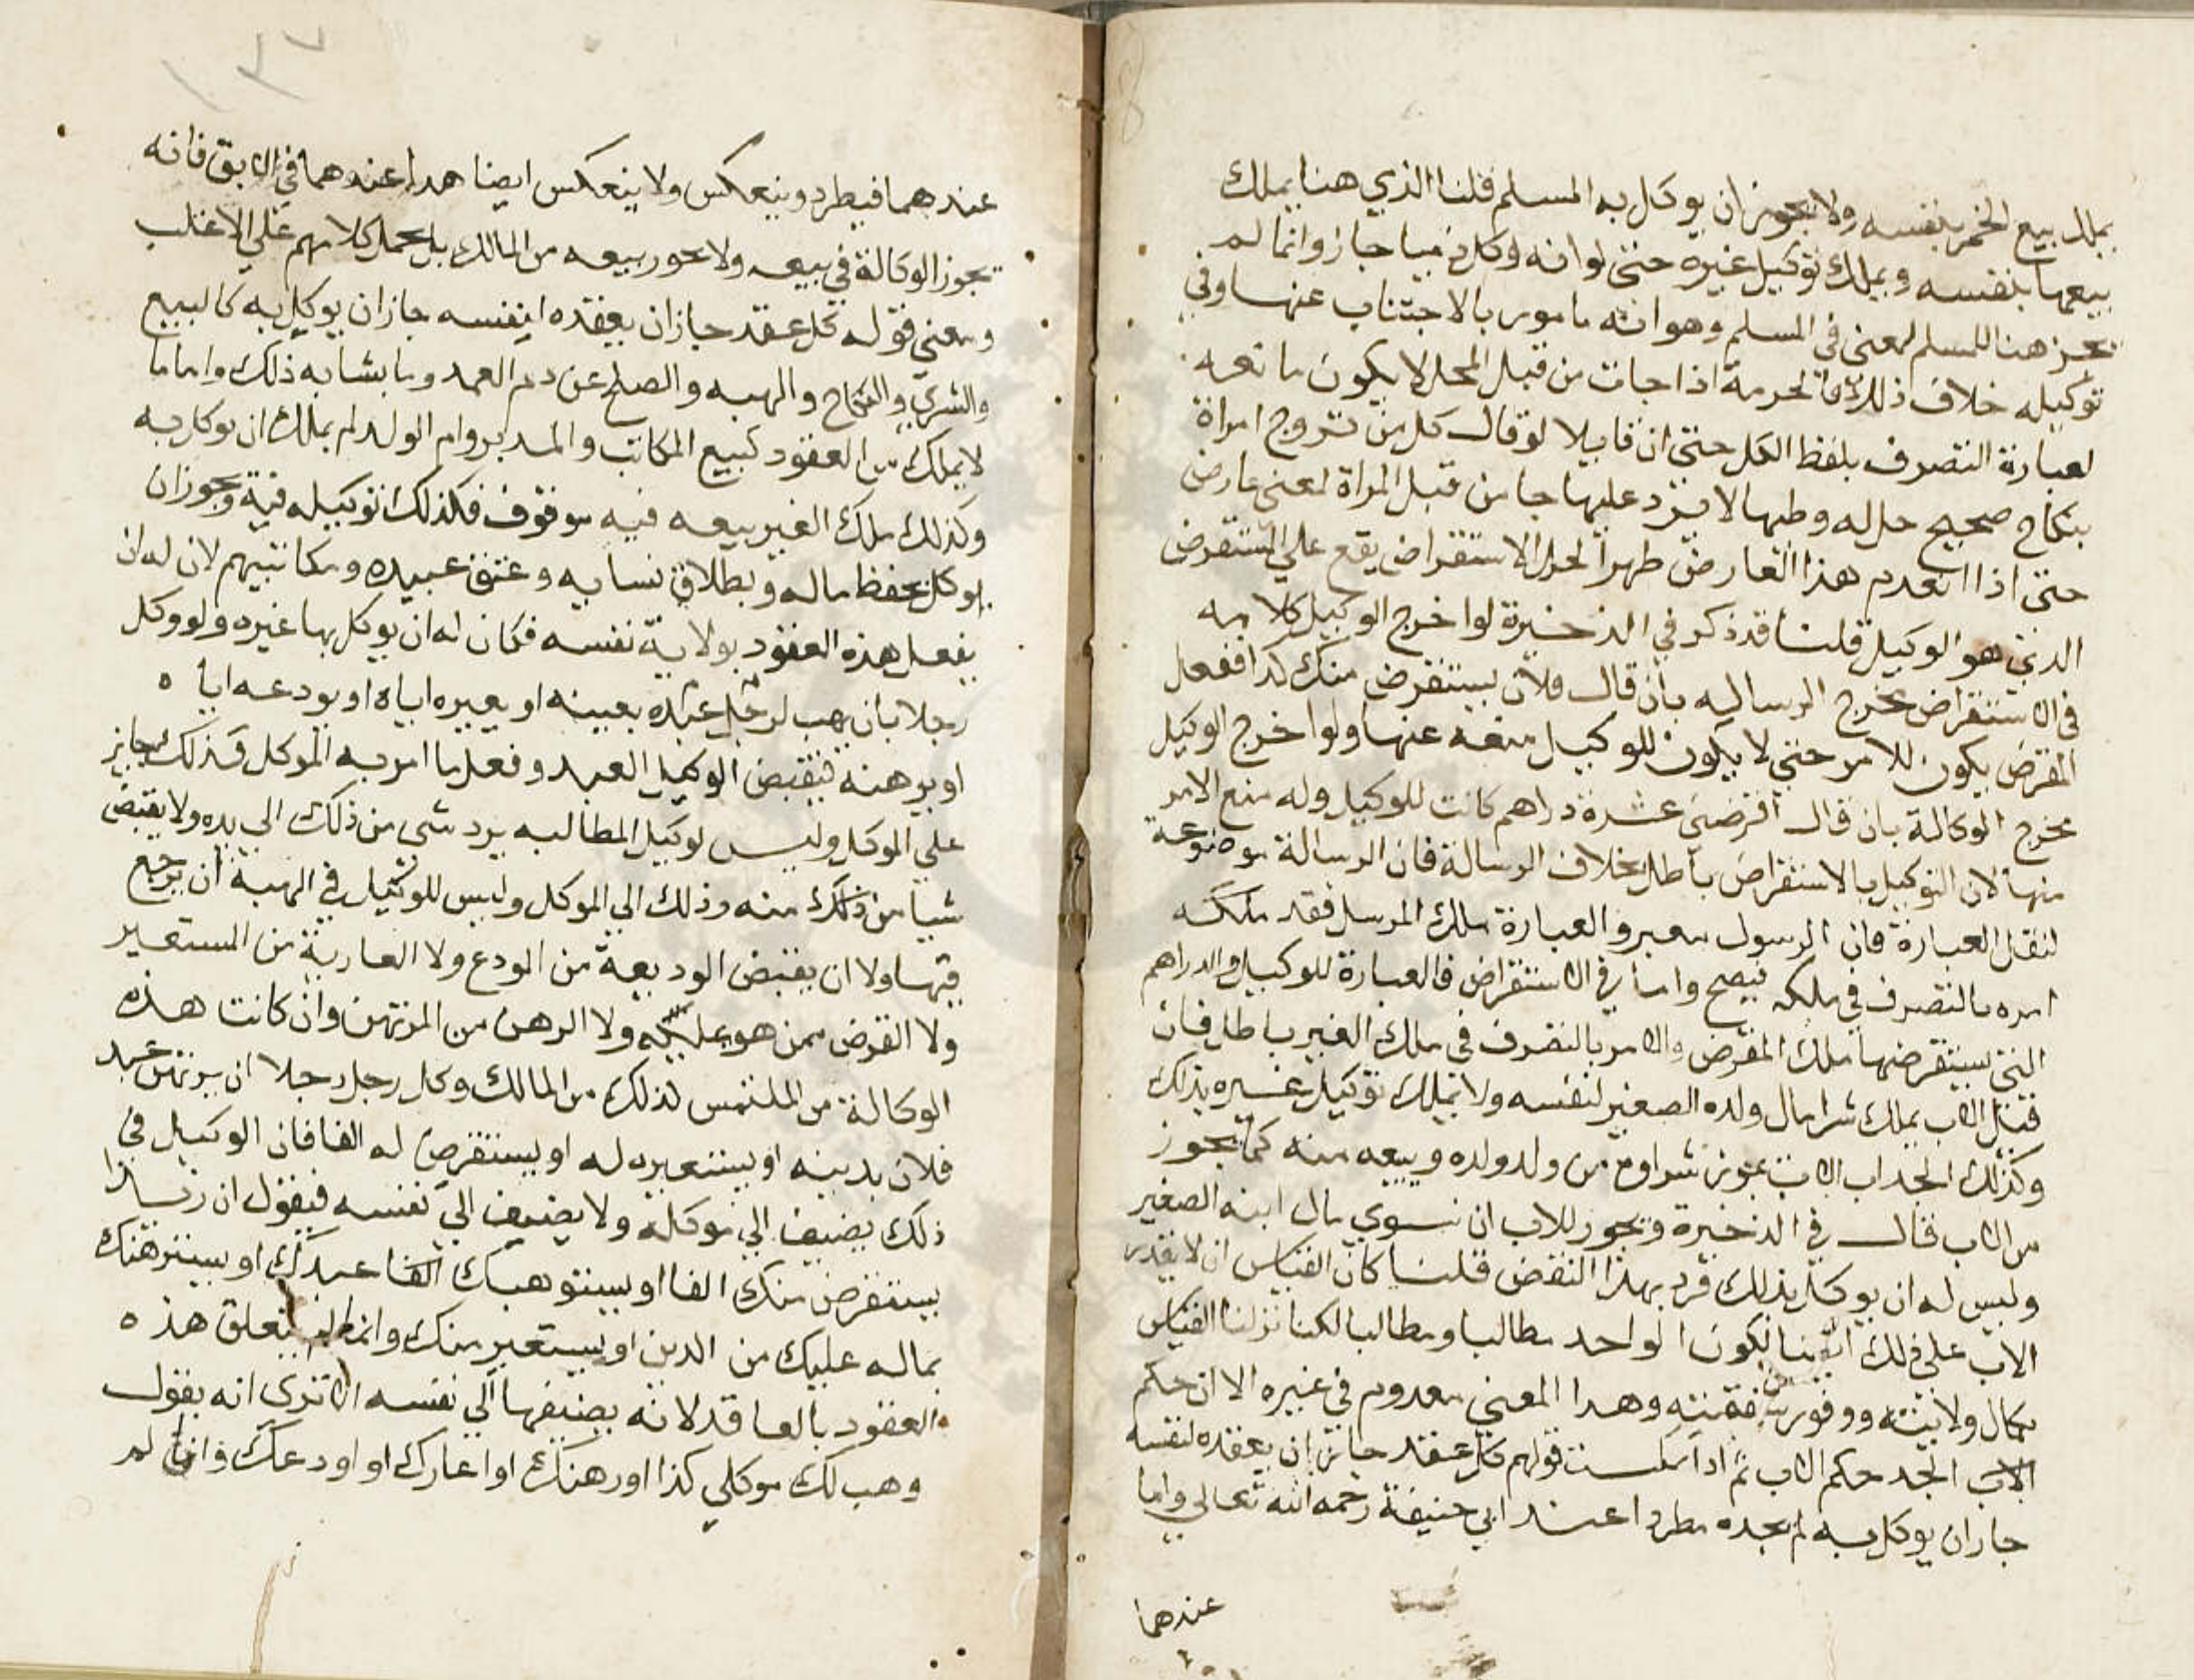 يملك بيع الخمر بنفسه ولا يجوز ان يوكل به المسلم قلنا الذي هنا يملك
بيعها بنفسه ويملك توكيل غيره حتى لو انه وكل ذميا جاز وانما لم
يجز هنا للمسلم لمعنى في المسلم وهو انه مامور بالاجتناب عنها وفي
توكيله خلاف ذلك والحرمة اذا جات من قبل المحل لا يكون مانعه
لعبارة التصرف بلفظ الكل حتى ان قايلا لو قال كل من تزوج امراة
بنكاح صحيح حل له وطيها لا يرد عليها جا من قبل المراة لمعنى عارض
حتى اذا انعدم هذا العارض ظهر الحل الاستقراض يقع على المستقرض
الذي هو الوكيل قلنا قد ذكر في الذخيرة لو اخرج الوكيل كلامه
في الاستقراض مخرج الرسالة بان قال فلان يستقرض منك كذا ففعل
المقرض يكون للامر حتى لا يكون للوكيل منعه عنها ولو اخرج الوكيل
مخرج الوكالة بان قال اقرضني عشرة دراهم كانت للوكيل وله منع الامر
منها لان التوكيل بالاستقراض باطل بخلاف الرسالة فان الرسالة موضوعة
لنقل العبارة فان الرسول معبر والعبارة ملك المرسل فقد ملكه
امره بالتصرف في ملكه فيصح واما في الاستقراض فالعبارة للوكيل والدراهم
التي يستقرضها ملك المقرض والامر بالتصرف في ملك الغير باطل فان
قيل الاب يملك شرا مال ولده الصغير لنفسه ولا يملك توكيل غيره بذلك
وكذلك الجد اب الاب يجوز شراوه من ولد ولده وبيعه منه كما يجوز
من الاب قال في الذخيرة ويجوز للاب ان يشتري مال ابنه الصغير
وليس له ان يوكل بذلك فرد بهذا النقض قلنا كان القياس ان لا يقدر
الاب على ذلك ايضا لكون الواحد مطالبا ومطالبا لكنا تركنا القياس
بكمال ولايته ووفور شفقته وهذا المعني معدوم في غيره الا ان حكم
الاب الجد حكم الاب ثم اذا قولهم كل عقد جايز ان يعقده لنفسه
جاز ان يوكل به لم يجده مطردا عند ابي حنيفة رحمه الله تعالى واما
عندهما
١٣٧
عندهما فيطرد وينعكس ولا ينعكس ايضا هذا عندهما في الابق فانه
يجوز الوكالة في بيعه ولا يجوز بيعه من المالك بل يحمل كلامهم على الاغلب
ومعنى قوله كل عقد جاز ان يعقده لنفسه جاز ان يوكل به كالبيع
والشرى والنكاح والهبه والصلح عن دم العمد وما يشابه ذلك واما ما
لا يملك من العقود كبيع المكاتب والمدبر وام الولد لم يملك ان يوكل به
وكذلك ملك الغير بيعه فيه موقوف فكذلك توكيله فيه ويجوز ان
يوكل بحفظ ماله وبطلاق نسايه وعتق عبيده ومكاتبتهم لان له ان
يفعل هذه العقود بولاية نفسه فكان له ان يوكل بها غيره ولو وكل
رجلا بان يهب لرجل عبده بعينه او يعيره اياه او يودعه اياه
او يرهنه فيقبض الوكيل العبد وفعل ما امر به الموكل فذلك جايز
على الموكل وليس لوكيل المطالبه برد شى من ذلك الى يده ولا يقبض
شيا من ذلك منه وذلك الى الموكل وليس للوكيل في الهبة ان يرجع
فيها ولا ان يقبض الوديعة من المودع ولا العارية من المستعير
ولا القرض ممن هو عليه ولا الرهن من المرتهن وان كانت هذه
الوكالة من الملتمس لذلك من المالك وكل رجل رجلا ان يرتهن عبد
فلان بدينه او يستعيره له او يستقرض له الفا فان الوكيل في
ذلك يضيف الى موكله ولا يضيف الى نفسه فيقول ان زيدا
يستقرض منك الفا او يستوهبك الفا عبدك او يسترهنك
بماله عليك من الدين او يستعير منك وانما تتعلق هذه
العقود بالعاقد لانه يضيفها الى نفسه الا ترى انه يقول
وهب لك موكلي كذا او رهنك او اعارك او اودعك وان لم